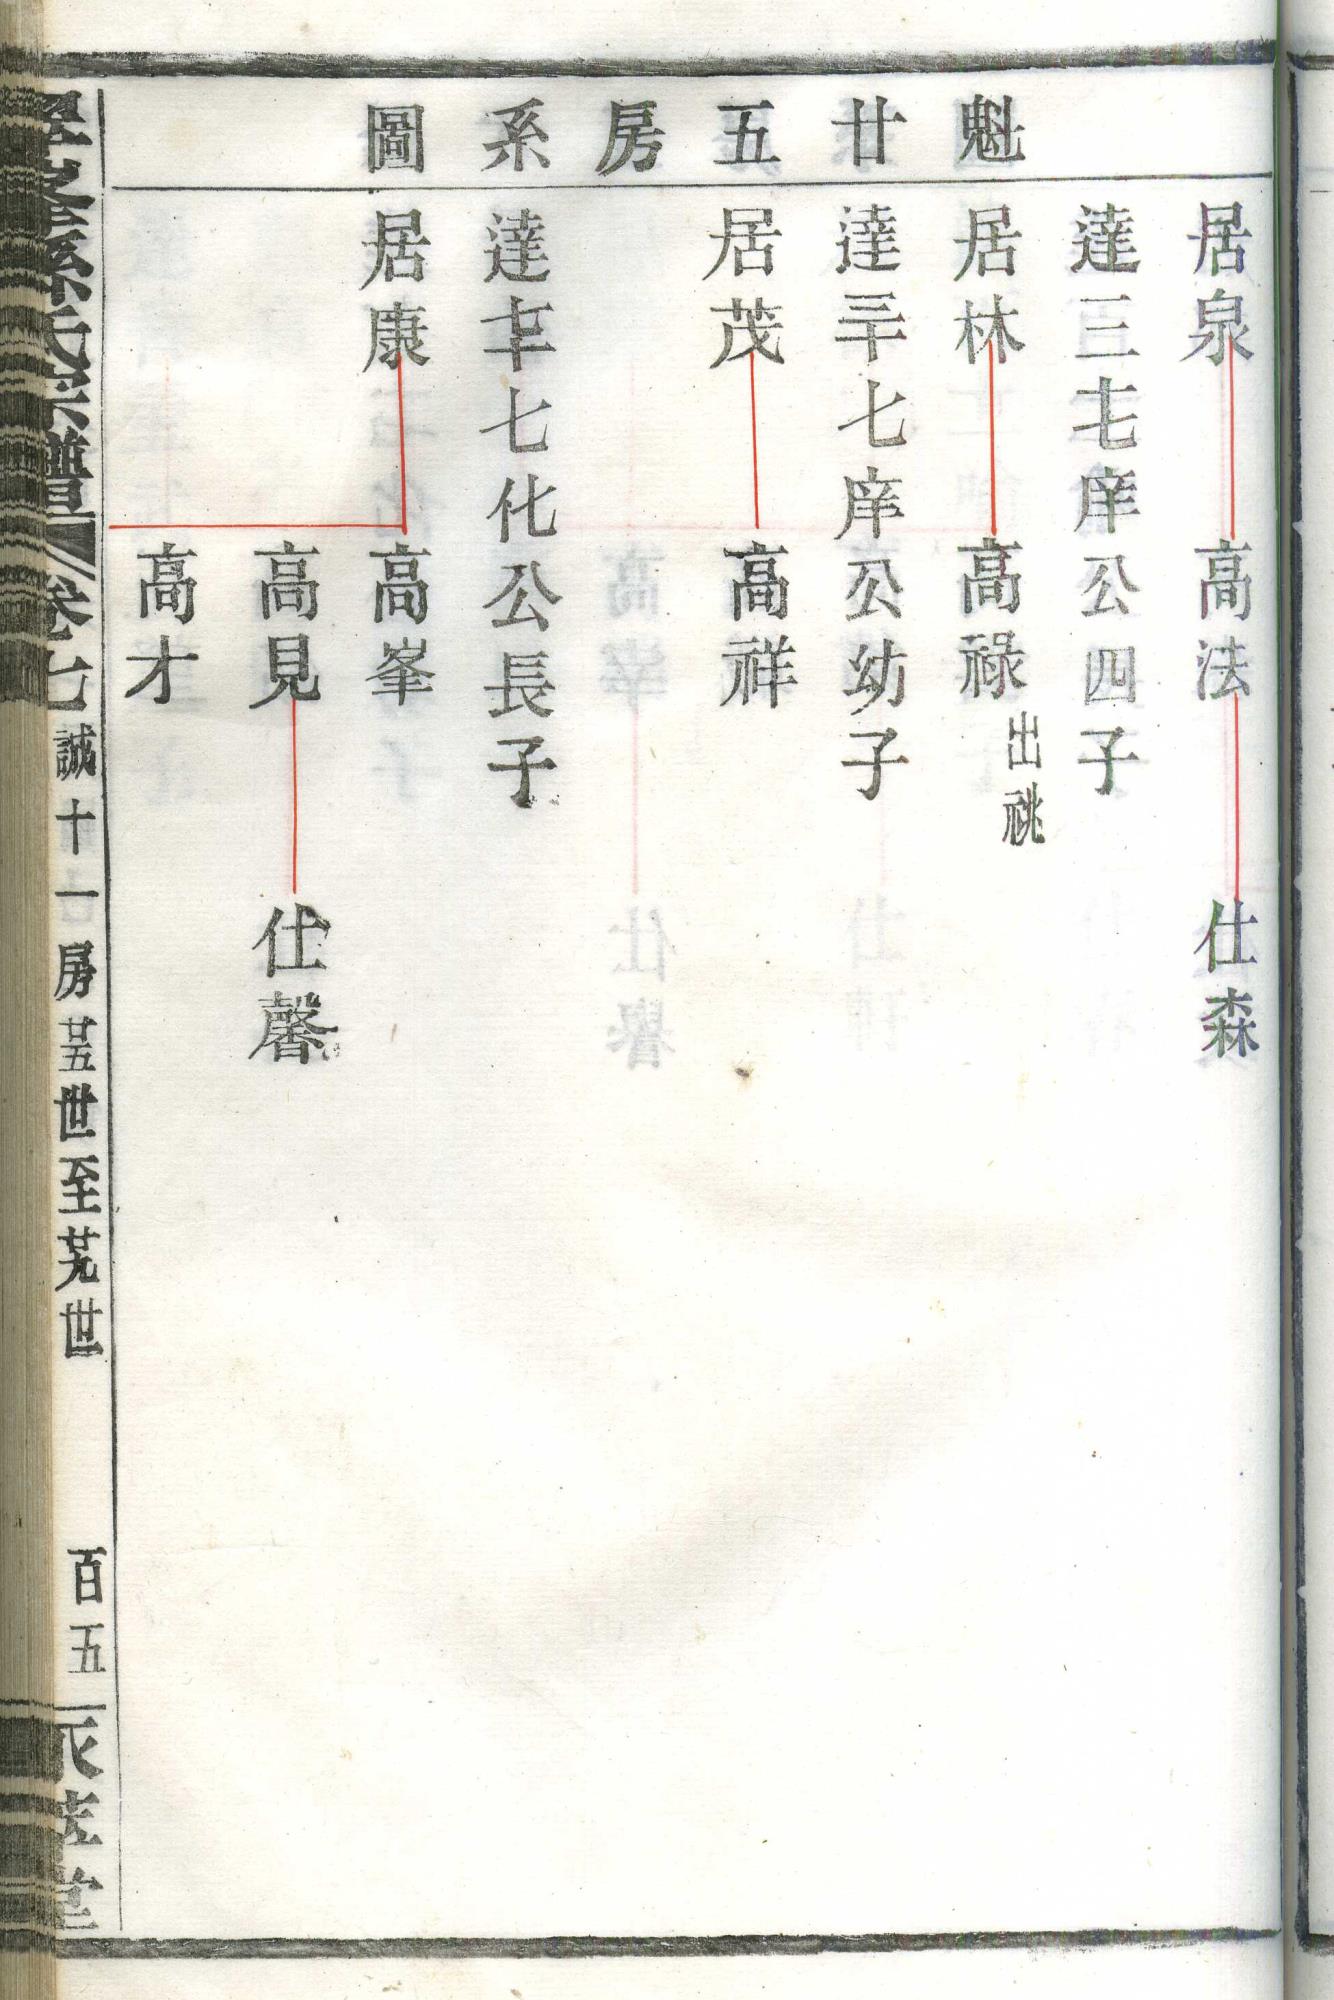 魁廿五房系圖
居泉
高法
仕森
達三七庠公四子
居林
高祿
出祧
達三十七庠公幼子
居茂
高祥
達七十七化公長子
居康
高峯
高見
仕馨
高才
孫氏宗譜
卷七
誠十一房廿五世至廿九世
百五
堂